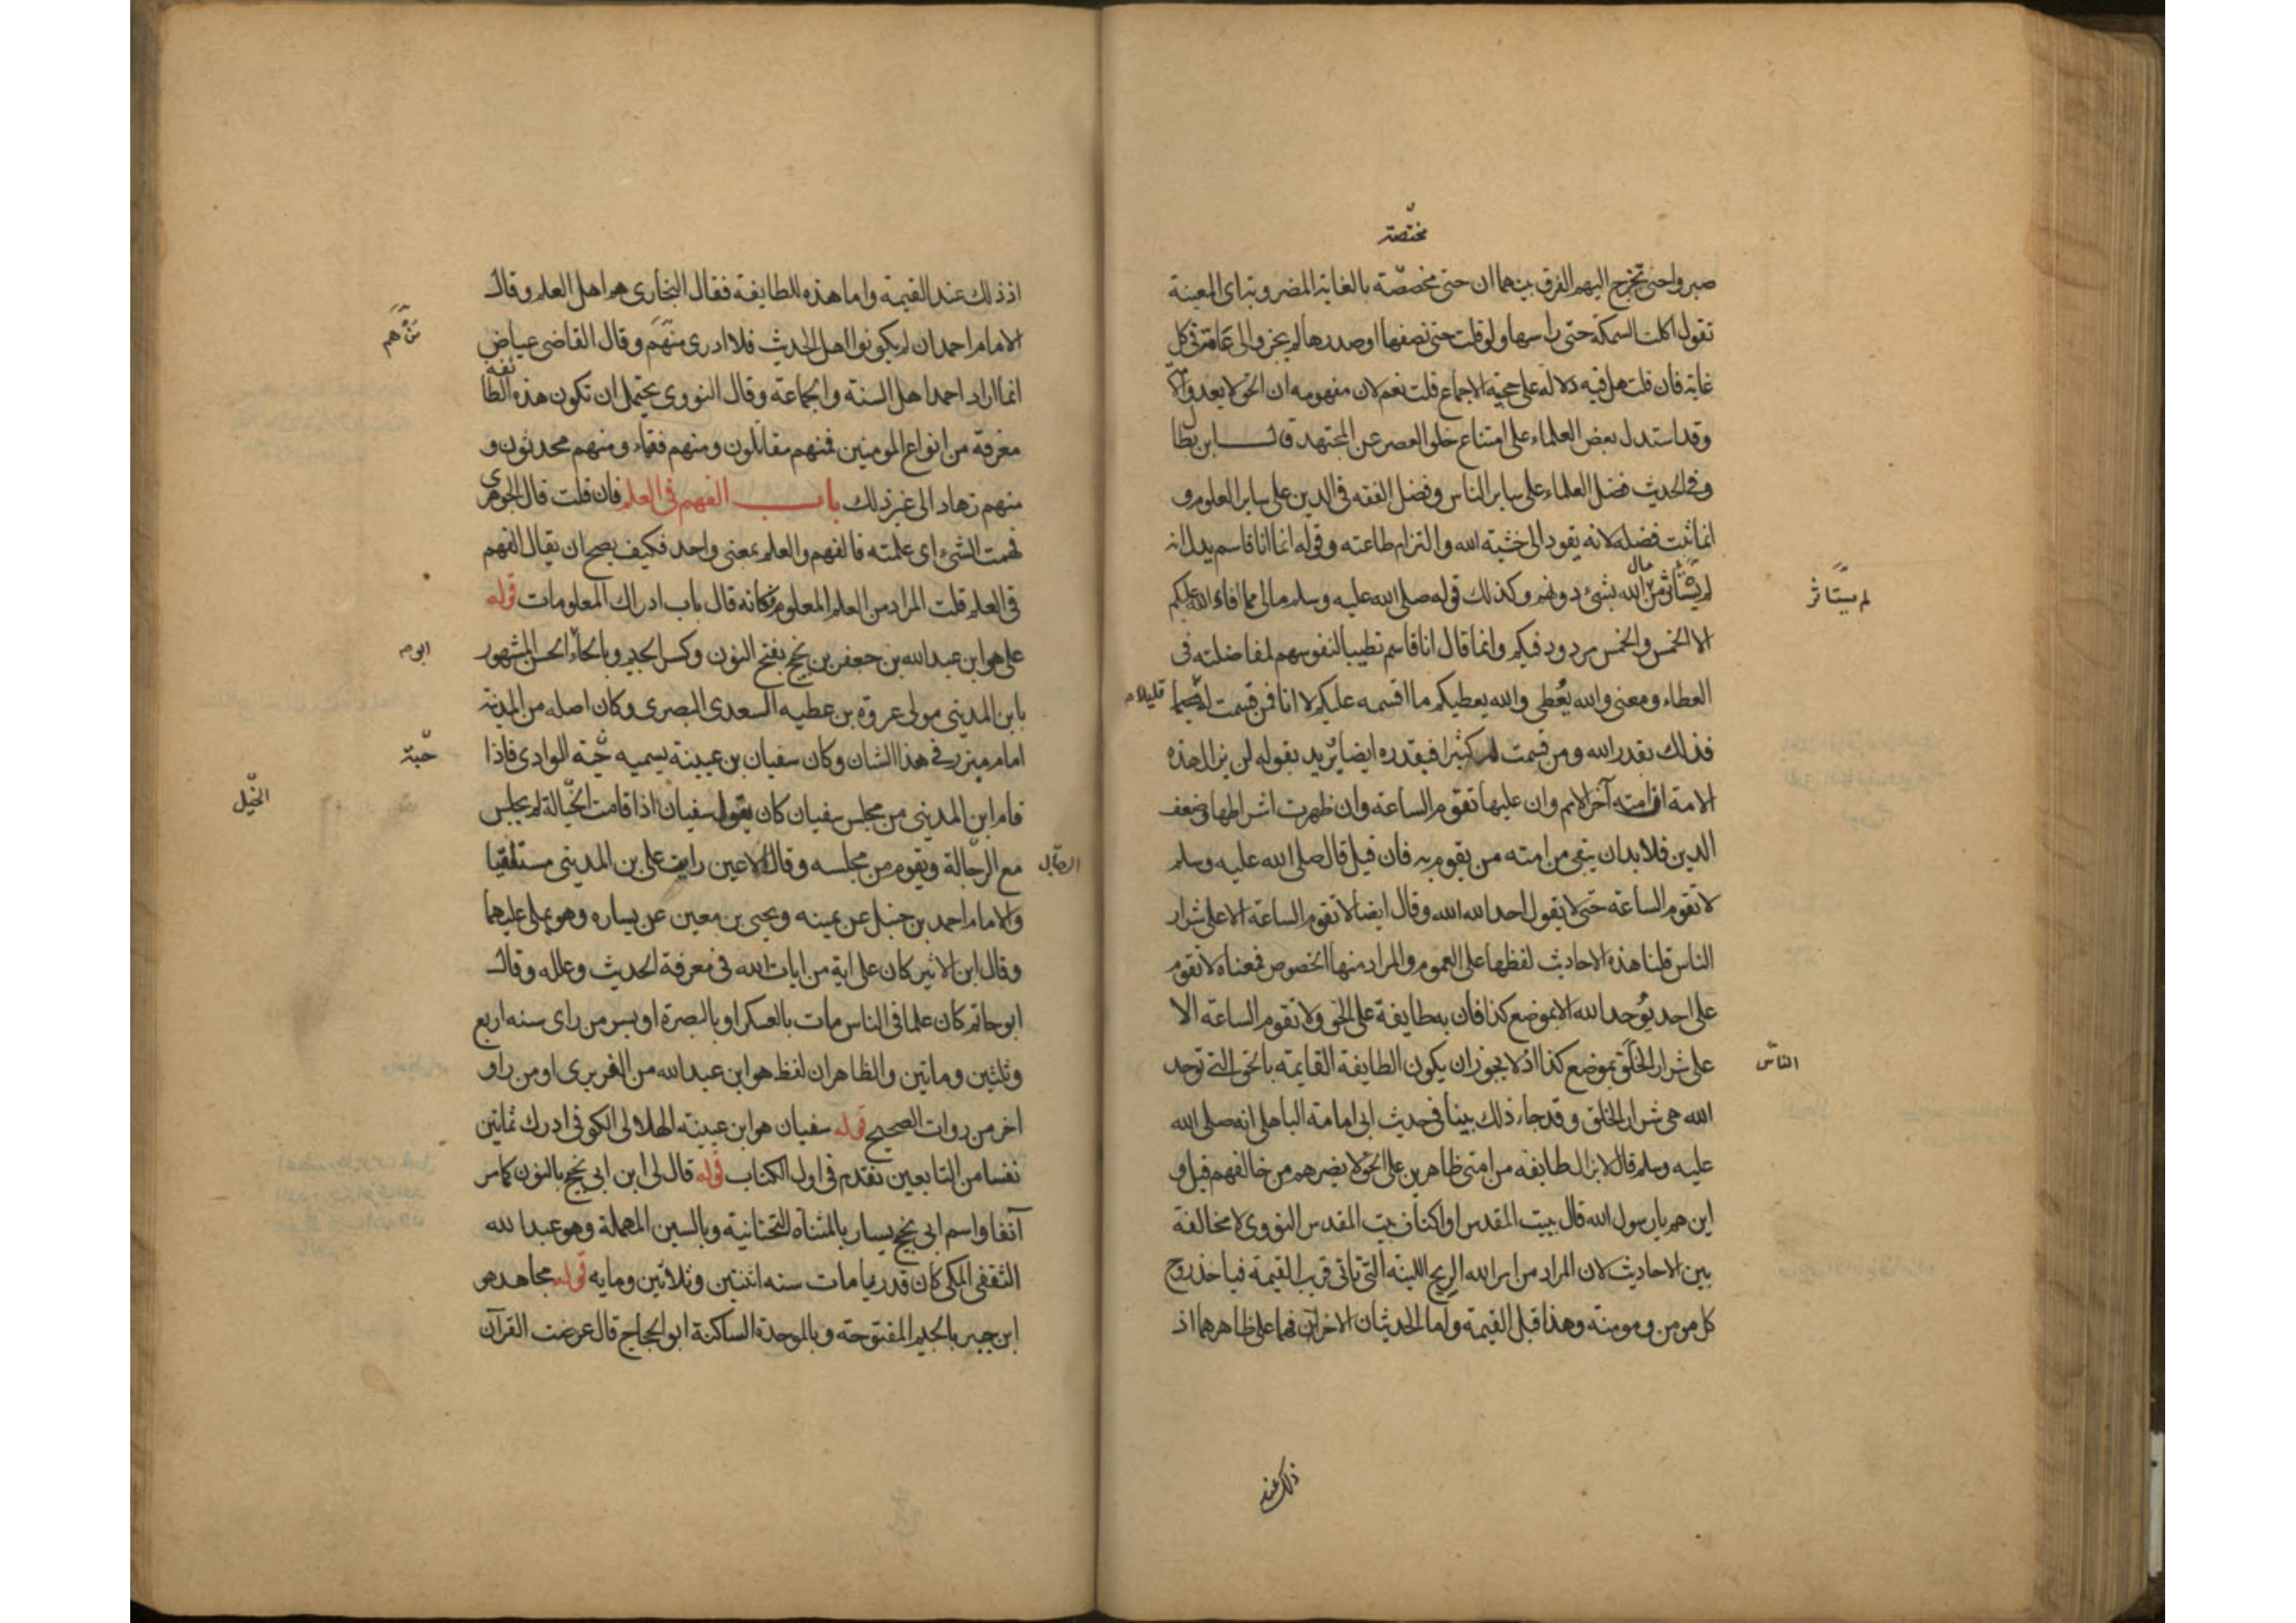 مختصة
صبروا حتى تخرج اليهم الفرق بينهما ان حتى مخصصة بالغاية المضروبة اى المعينة
تقول اكلت السمكة حتى راسها ولو قلت حتى نصفها او صدرها لم يجز والى عامة فى كل
غاية فان قلت هل فيه دلالة على حجية الاجماع قلت نعم لان مفهومه ان الحق لا يعدو الامة
وقد استدل بعض العلماء على امتناع خلو العصر عن المجتهد قال ابن بطال
وفى الحديث فضل العلماء على ساير الناس وفضل الفقه فى الدين على ساير العلوم و
انما ثبت فضله لانه يقود الى خشية الله والتزام طاعته وقوله انما انا قاسم يدل انه
لم يستاثر من مال الله بشئ دونهم وكذلك قوله صلى الله عليه وسلم مالى مما افاء الله عليكم
لم يستاثر
الا الخمس والخمس مردود فيكم وانما قال انا قاسم تطييبا لنفوسهم لمفاضلته فى
العطاء ومعنى والله يعطى والله يعطيكم ما اقسمه عليكم لا انا فمن قسمت له
قليلا
فذلك بقدر الله ومن قسمت له كثيرا فبقدره ايضا يريد بقوله لن يزال هذه
الامة ان امته آخر الامم وان عليها تقوم الساعة وان ظهرت اشراطها وضعف
الدين فلا بد ان يبقى من امته من يقوم به فان قيل قال صلى الله عليه وسلم
لا تقوم الساعة حتى لا يقول احد الله الله وقال ايضا لا تقوم الساعة الا على شرار
الناس قلنا هذه الاحاديث لفظها على العموم والمراد منها الخصوص فمعناه لا تقوم
على احد يوحد الله الا بموضع كذا فان به طايفة على الحق ولا تقوم الساعة الا
على شرار الخلق بموضع كذا اذ لا يجوز ان يكون الطايفة القايمة بالحق التى توحد
الناس
الله هى شرار الخلق وقد جاء ذلك بينا فى حديث ابى امامة الباهلى انه صلى الله
عليه وسلم قال لا يزال طايفة من امتى ظاهرين على الحق لا يضرهم من خالفهم قيل و
اين هم يا رسول الله قال ببيت المقدس او اكناف بيت المقدس النووى لا مخالفة
بين الاحاديث لان المراد من امر الله الريح اللينة التى تاتى قرب القيمة فياخذ روح
كل مومن ومومنة وهذا قبل القيمة واما الحديثان الاخران فهما على ظاهرهما اذ
ذلك عند
اذ ذلك عند القيمة واما هذه الطايفة فقال البخارى هم اهل العلم وقال
الامام احمد ان لم يكونوا اهل الحديث فلا ادرى منهم وقال القاضى عياض
من هم
انما اراد احمد اهل السنة والجماعة وقال النووى يحتمل ان تكون هذه الطائفة
مفرقة من انواع المومنين فمنهم مقاتلون ومنهم فقهاء ومنهم محدثون و
منهم زهاد الى غير ذلك باب الفهم فى العلم فان قلت قال الجوهرى
فهمت الشئ اى علمته فالفهم والعلم بمعنى واحد فكيف يصح ان يقال الفهم
فى العلم قلت المراد من العلم المعلوم فكانه قال باب ادراك المعلومات قوله
على هو ابن عبد الله بن جعفر بن نجيح بفتح النون وكسر الجيم وبالحاء الحسن المشهور
ابو
بابن المدينى مولى عروة بن عطية السعدى البصرى وكان اصله من المدينة
امام مبرز فى هذا الشان وكان سفيان بن عيينة يسميه حية الوادى فاذا
حية
قام ابن المدينى من مجلس سفيان كان يقول سفيان اذا قامت الخيالة لم يجلس
الخيل
مع الرجالة ويقوم من مجلسه وقال الاعين رايت على بن المدينى مستلقيا
والامام احمد بن حنبل عن يمينه ويحيى بن معين عن يساره وهو يملى عليهما
وقال ابن الاثير كان على اية من ايات الله فى معرفة الحديث وعلله وقال
ابو حاتم كان علما فى الناس مات بالعسكر او بالبصرة او بسر من راى سنه اربع
وثلثين وماتين والظاهر ان لفظ هو ابن عبد الله من الفربرى او من راو
اخر من روات الصحيح قوله سفيان هو ابن عيينة الهلالى الكوفى ادرك ثمانين
نفسا من التابعين تقدم فى اول الكتاب قوله قال لى ابن ابى نجيح بالنون كما مر
آنفا واسم ابى نجيح يسار بالمثناة التحتانية وبالسين المهملة وهو عبد الله
الثقفى المكى كان قدريا مات سنه اثنتين وثلاثين ومايه قوله مجاهد هو
ابن جبر بالجيم المفتوحة وبالموحدة الساكنة ابو الحجاج قال عرضت القرآن